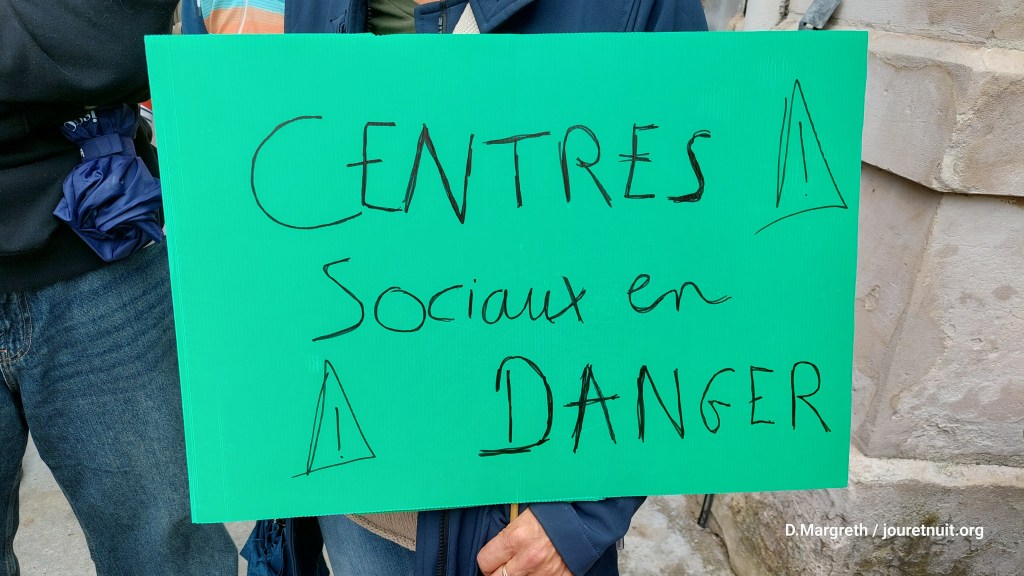 CENTRES
Sociaux en
DANGER
D.Margreth / jouretnuit.org